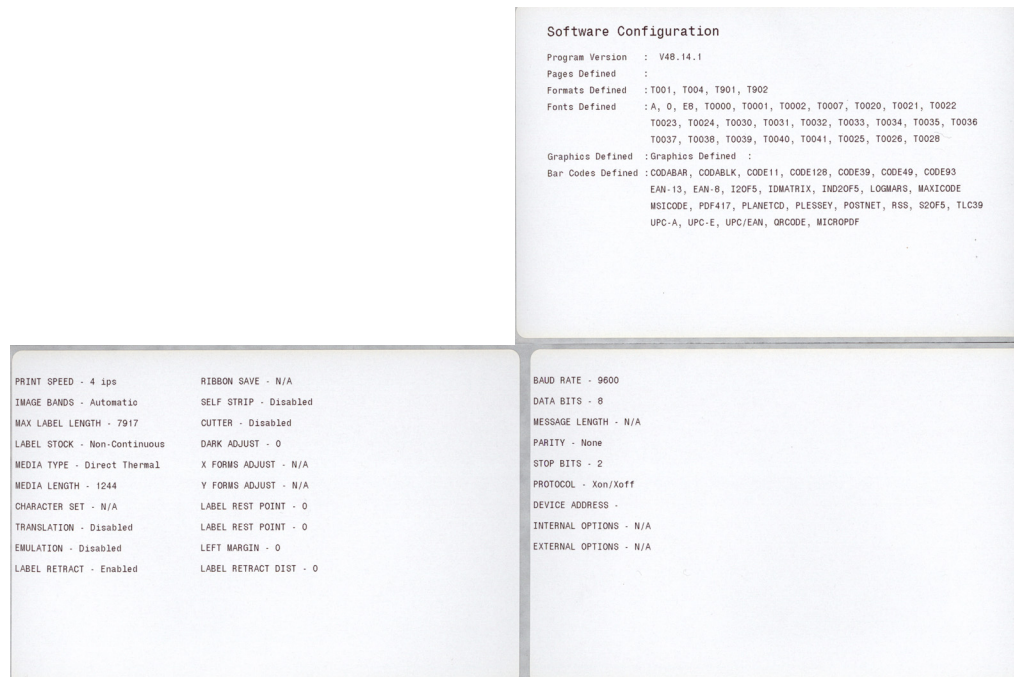 Software Configuration
Program Version : V48.14.1
Pages Defined :
Formats Defined :T001, T004, T901, T902
Fonts Defined :A, O, E8, T0000, T0001, T0002, T0007, T0020, T0021, T0022
T0023, T0024, T0030, T0031, T0032, T0033, T0034, T0035, T0036
T0037, T0038, T0039, T0040, T0041, T0025, T0026, T0028
Graphics Defined :Graphics Defined :
Bar Codes Defined :CODABAR, CODABLK, CODE11, CODE128, CODE39, CODE49, CODE93
EAN-13, EAN-8, I2OF5, IDMATRIX, IND2OF5, LOGMARS, MAXICODE
MSICODE, PDF417, PLANETCD, PLESSEY, POSTNET, RSS, S2OF5, TLC39
UPC-A, UPC-E, UPC/EAN, QRCODE, MICROPDF
PRINT SPEED - 4 ips
IMAGE BANDS - Automatic
MAX LABEL LENGTH - 7917
LABEL STOCK - Non-Continuous
MEDIA TYPE - Direct Thermal
MEDIA LENGTH - 1244
CHARACTER SET - N/A
TRANSLATION - Disabled
EMULATION - Disabled
LABEL RETRACT - Enabled
RIBBON SAVE - N/A
SELF STRIP - Disabled
CUTTER - Disabled
DARK ADJUST - 0
X FORMS ADJUST - N/A
Y FORMS ADJUST - N/A
LABEL REST POINT - 0
LABEL REST POINT - 0
LEFT MARGIN - 0
LABEL RETRACT DIST - 0
BAUD RATE - 9600
DATA BITS - 8
MESSAGE LENGTH - N/A
PARITY - None
STOP BITS - 2
PROTOCOL - Xon/Xoff
DEVICE ADDRESS -
INTERNAL OPTIONS - N/A
EXTERNAL OPTIONS - N/A